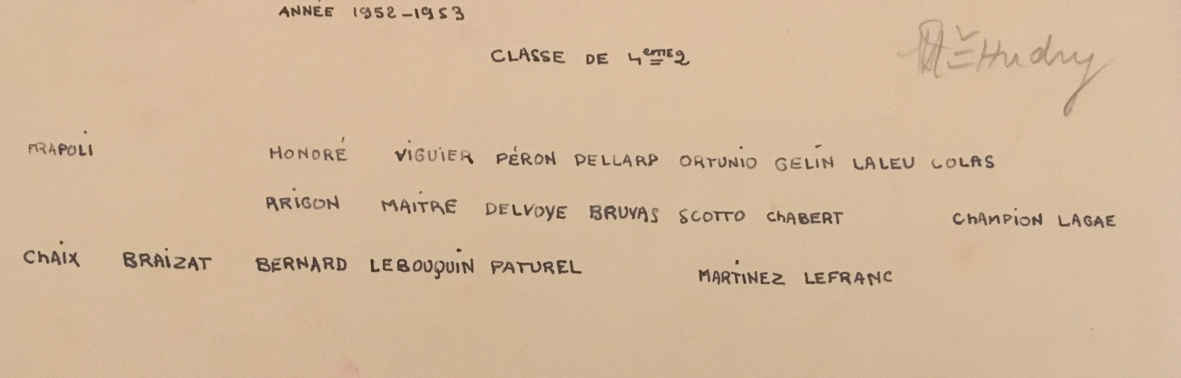 ANNÉE 1952-1953
CLASSE DE 4eme2
Hudry
FRAPOLI HONORÉ VIGUIER PÉRON DELLARD ORTUNIO GELIN LALEU COLAS
ARIGON MAITRE DELVOYE BRUYAS SCOTTO CHABERT CHAMPION LAGAE
CHAIX BRAIZAT BERNARD LEBOUQUIN PATUREL MARTINEZ LEFRANC